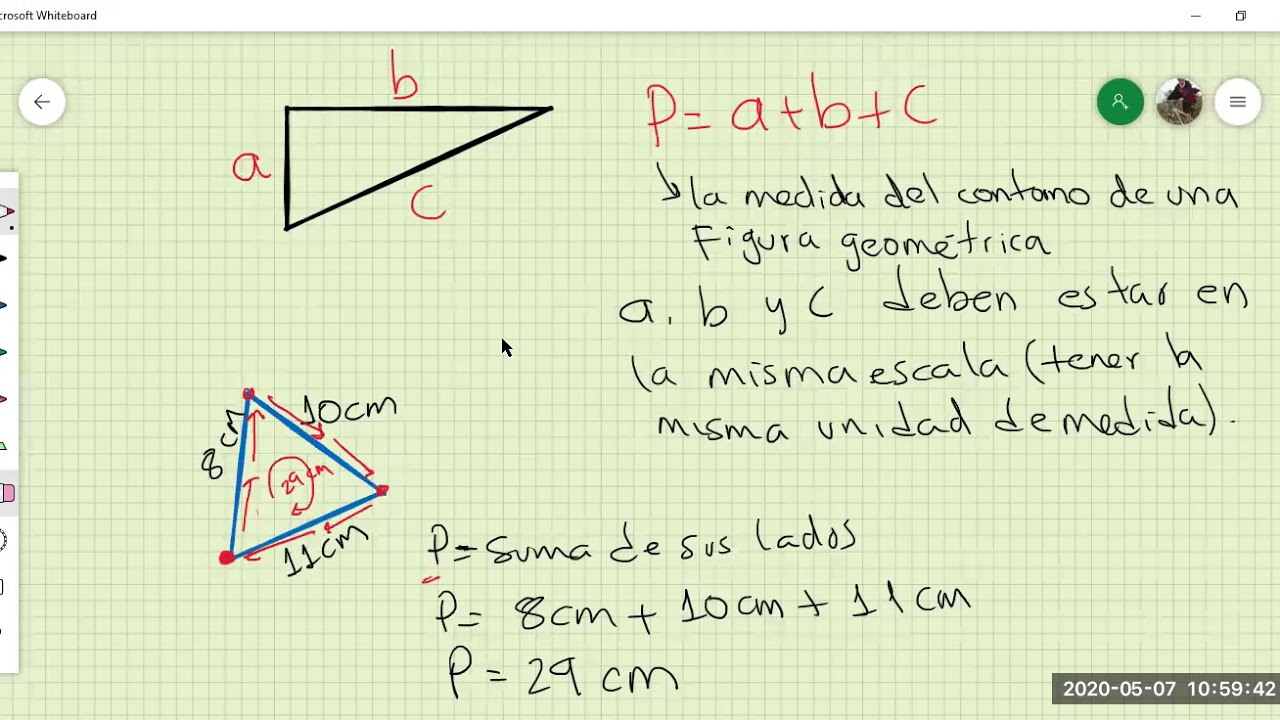 crosoft Whiteboard
b
a
c
P= a+b+c
la medida del contorno de una
Figura geométrica
a, b y c deben estar en
la misma escala (tener la
misma unidad de medida).
8 cm
10cm
29 cm
11cm
P= Suma de sus lados
P= 8cm + 10cm + 11cm
P= 29 cm
2020-05-07 10:59:42